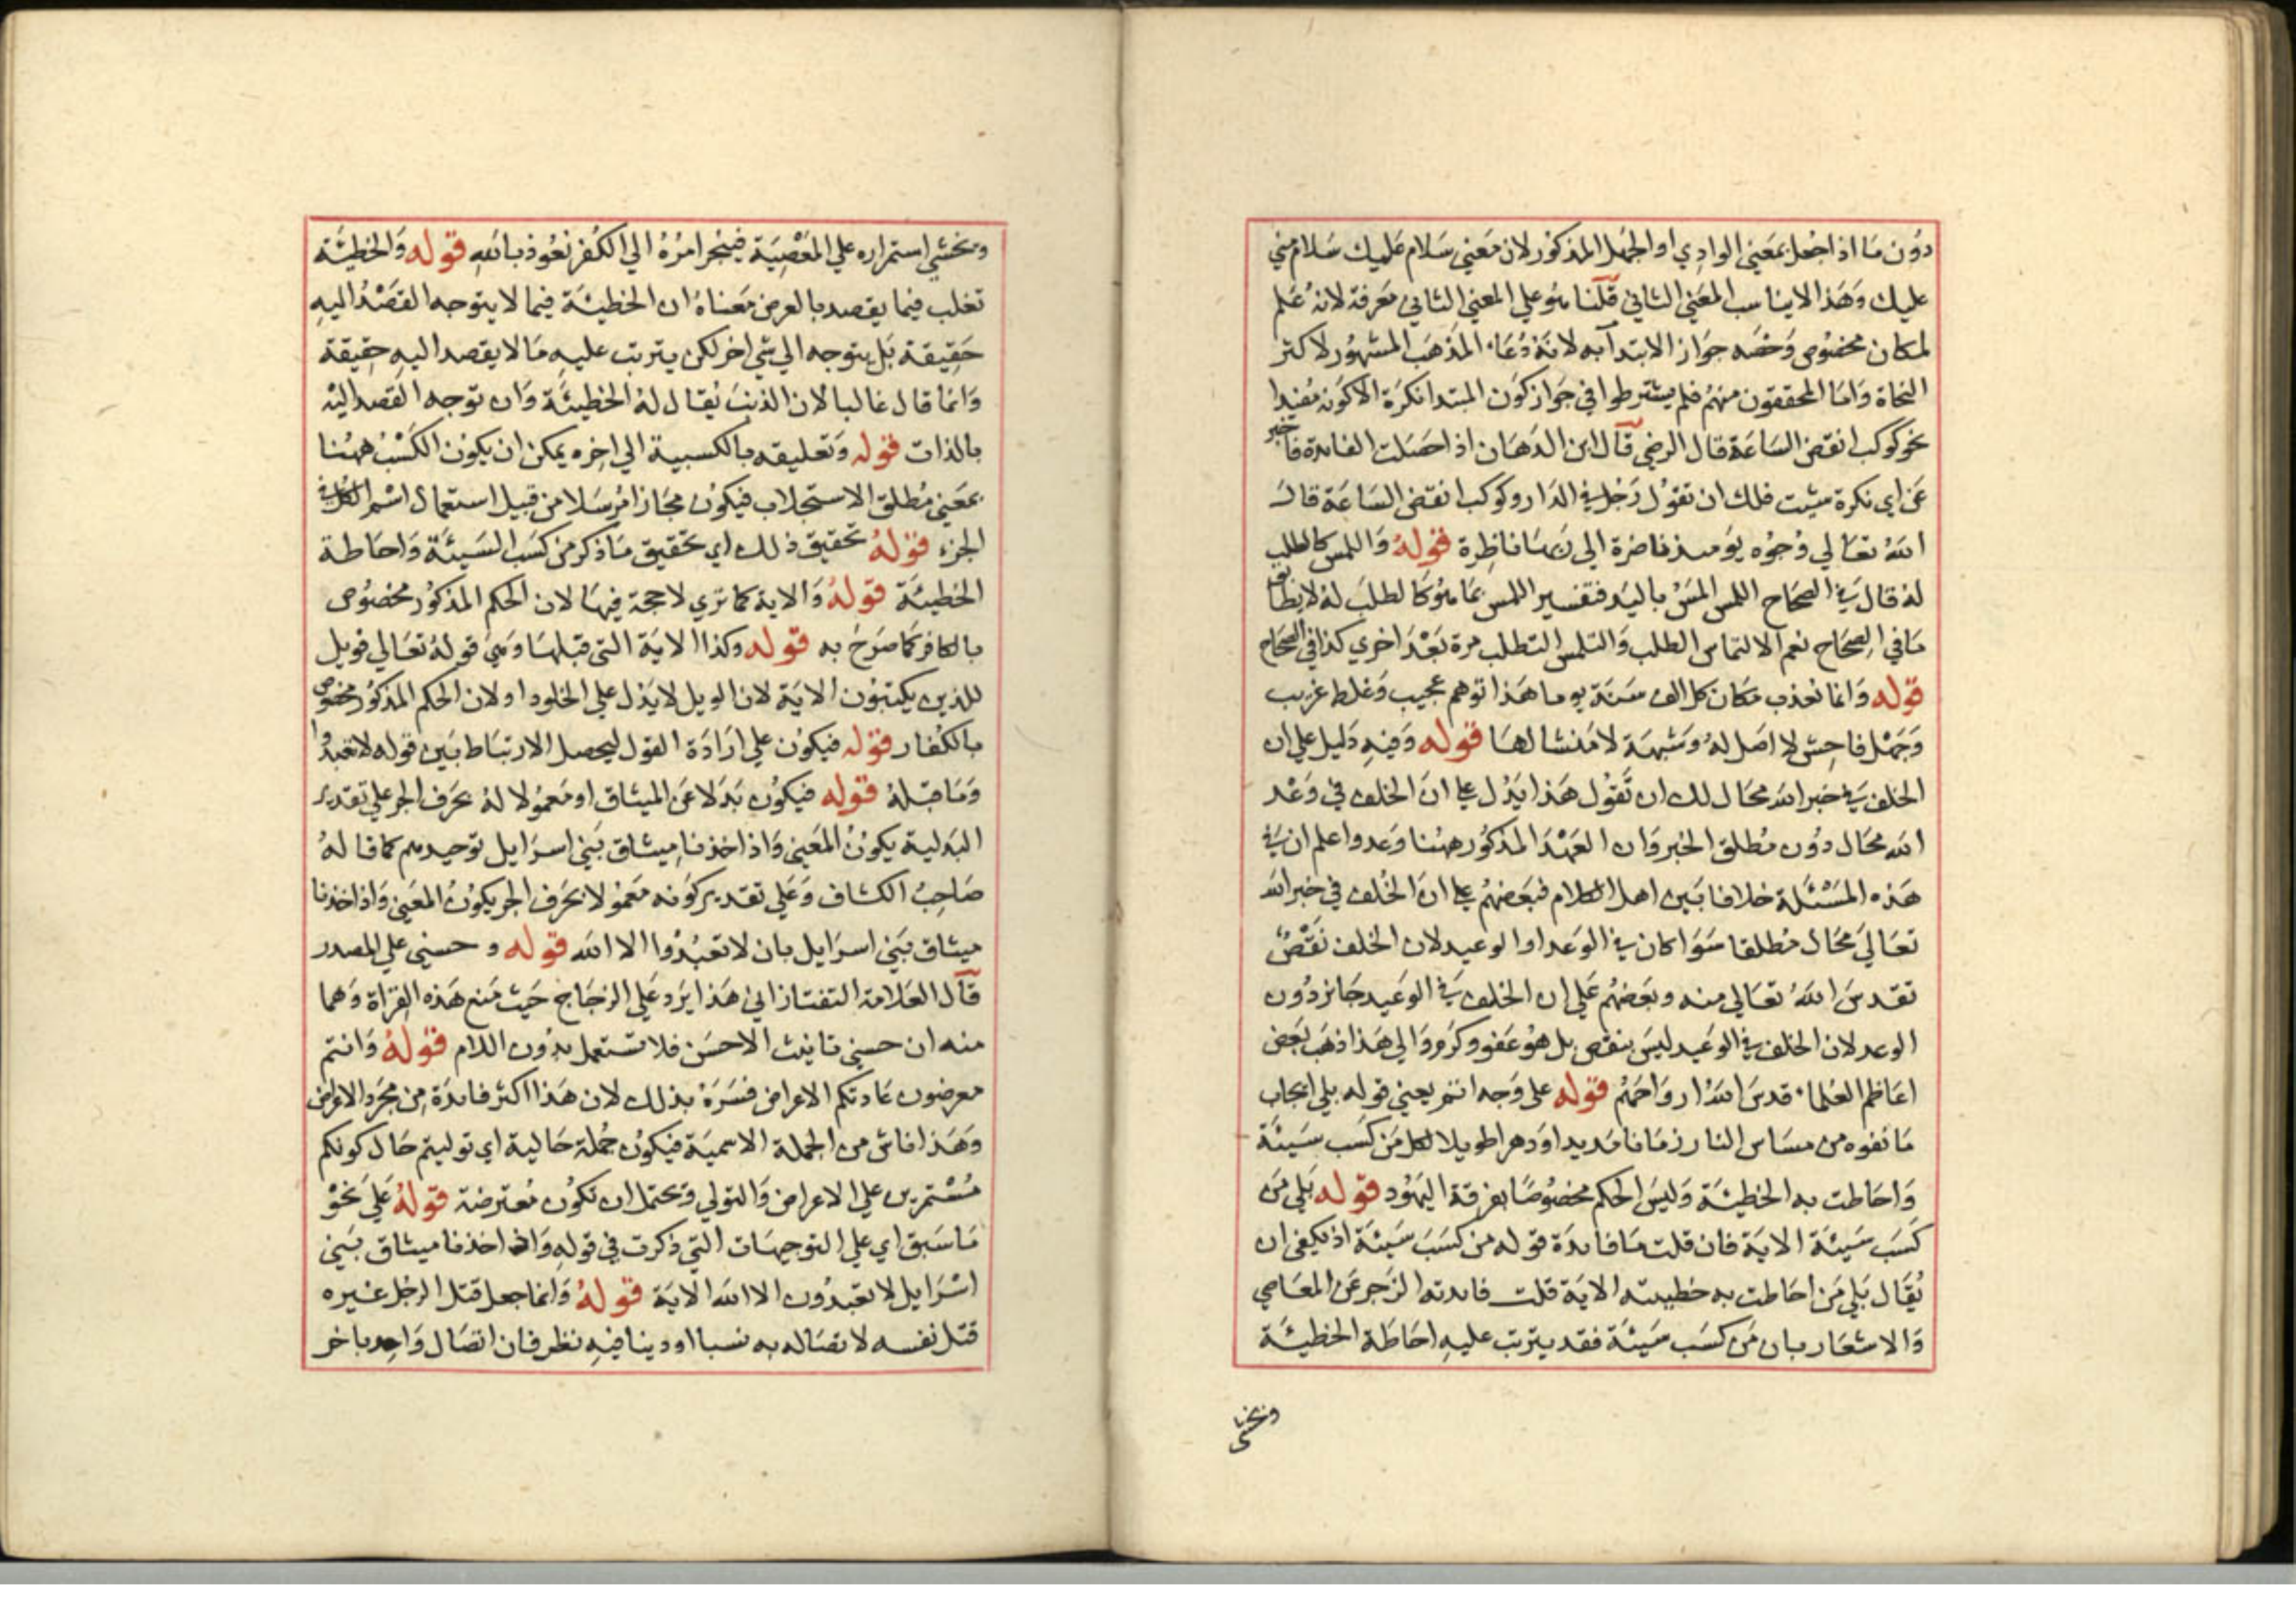 دون ما اذا جعل بمعني الوادي او الجهل المذكور لان معني سلام عليك سلام مني
عليك وهذا لايناسب المعني الثاني قلنا هو علي المعني الثاني معرفة لانه علم
لمكان مخصوص وخصه جواز الابتدآ به لانه دعاء المذهب المشهور لاكثر
النحاة واما المحققون منهم فلم يشترطوا في جواز كون المبتدا نكرة الاكونه مفيدا
نحو كوكب انقض الساعة قال الرضي قال ابن الدهان اذا حصلت الفايدة فاخبر
عن اي نكرة شيت فلك ان تقول رجل في الدار وكوكب انقض الساعة قال
الله تعالي وجوه يوميذ ناضرة الي ربها ناظرة قوله واللمس كالطلب
له قال في الصحاح اللمس المس باليد فتفسير اللمس بما هو كالطلب له لايطابق
ما في الصحاح نعم الالتماس الطلب والتلمس التطلب مرة بعد اخري كذا في الصحاح
قوله وانما نعذب مكان كل الف سنة يوما هذا توهم عجيب وغلط غريب
وجهل فاحش لا اصل له وشبهة لا منشا لها قوله وفيه دليل علي ان
الخلف في خبر الله محال لك ان تقول هذا يدل علي ان الخلف في وعد
الله محال دون مطلق الخبر وان العهد المذكور ههنا وعد واعلم ان في
هذه المسئلة خلافا بين اهل الكلام فبعضهم علي ان الخلف في خبر الله
تعالي محال مطلقا سوا كان في الوعد او الوعيد لان الخلف نقص
تقدس الله تعالي منه وبعضهم علي ان الخلف في الوعيد جايز دون
الوعد لان الخلف في الوعيد ليس بنقص بل هو عفو وكرم والي هذا ذهب بعض
اعاظم العلماء قدس الله ارواحهم قوله علي وجه اتم يعني قوله بلي ايجاب
ما نفوه من مساس النار زمانا مديدا ودهرا طويلا لكل من كسب سيئة
واحاطت به الخطيئة وليس الحكم مخصوصا بفرقة اليهود قوله بلي من
كسب سيئة الاية فان قلت ما فايدة قوله من كسب سيئة اذ يكفي ان
يقال بلي من احاطت به خطيئته الاية قلت فايدته الزجر عن المعاصي
والاشعار بان من كسب سيئة فقد يترتب عليه احاطة الخطيئة
ويخشي
ويخشي استمراره علي المعصية فينجر امره الي الكفر نعوذ بالله قوله والخطيئة
تغلب فيما يقصد بالعرض معناه ان الخطيئة فيما لا يتوجه القصد اليه
حقيقة بل يتوجه الي شي اخر لكن يترتب عليه ما لا يقصد اليه حقيقة
وانما قال غالبا لان الذنب يقال له الخطيئة وان توجه القصد اليه
بالذات قوله وتعليقه بالكسبية الي اخره يمكن ان يكون الكسب ههنا
بمعني مطلق الاستجلاب فيكون مجازا مرسلا من قبيل استعمال اسم الكل في
الجزء قوله تحقيق ذلك اي تحقيق ما ذكر من كسب السيئة واحاطة
الخطيئة قوله والاية كما تري لا حجة فيها لان الحكم المذكور مخصوص
بالكافر كما صرح به قوله وكذا الاية التي قبلها وهي قوله تعالي فويل
للذين يكتبون الاية لان الويل لا يدل علي الخلود او لان الحكم المذكور مخصوص
بالكفار قوله فيكون علي ارادة القول ليحصل الارتباط بين قوله لا تعبدوا
وما قبله قوله فيكون بدلا عن الميثاق او معمولا له بحرف الجر علي تقدير
البدلية يكون المعني واذ اخذنا ميثاق بني اسرايل توحيدهم كما قاله
صاحب الكشاف وعلي تقدير كونه معمولا بحرف الجر يكون المعني واذ اخذنا
ميثاق بني اسرايل بان لا تعبدوا الا الله قوله و حسني علي المصدر
قال العلامة التفتازاني هذا يرد علي الزجاج حيث منع هذه القراة وهما
منه ان حسني تانيث الاحسن فلا تستعمل بدون اللام قوله وانتم
معرضون عادتكم الاعراض فسره بذلك لان هذا اكثر فايدة من مجرد الاعراض
وهذا فاش من الجملة الاسمية فيكون جملة حالية اي توليتم حال كونكم
مستمرين علي الاعراض والتولي ويحتمل ان تكون معترضة قوله علي نحو
ما سبق اي علي التوجيهات التي ذكرت في قوله واذ اخذنا ميثاق بني
اسرايل لا تعبدون الا الله الاية قوله وانما جعل قتل الرجل غيره
قتل نفسه لاتصاله به نسبا او دينا فيه نظر فان اتصال واحد باخر